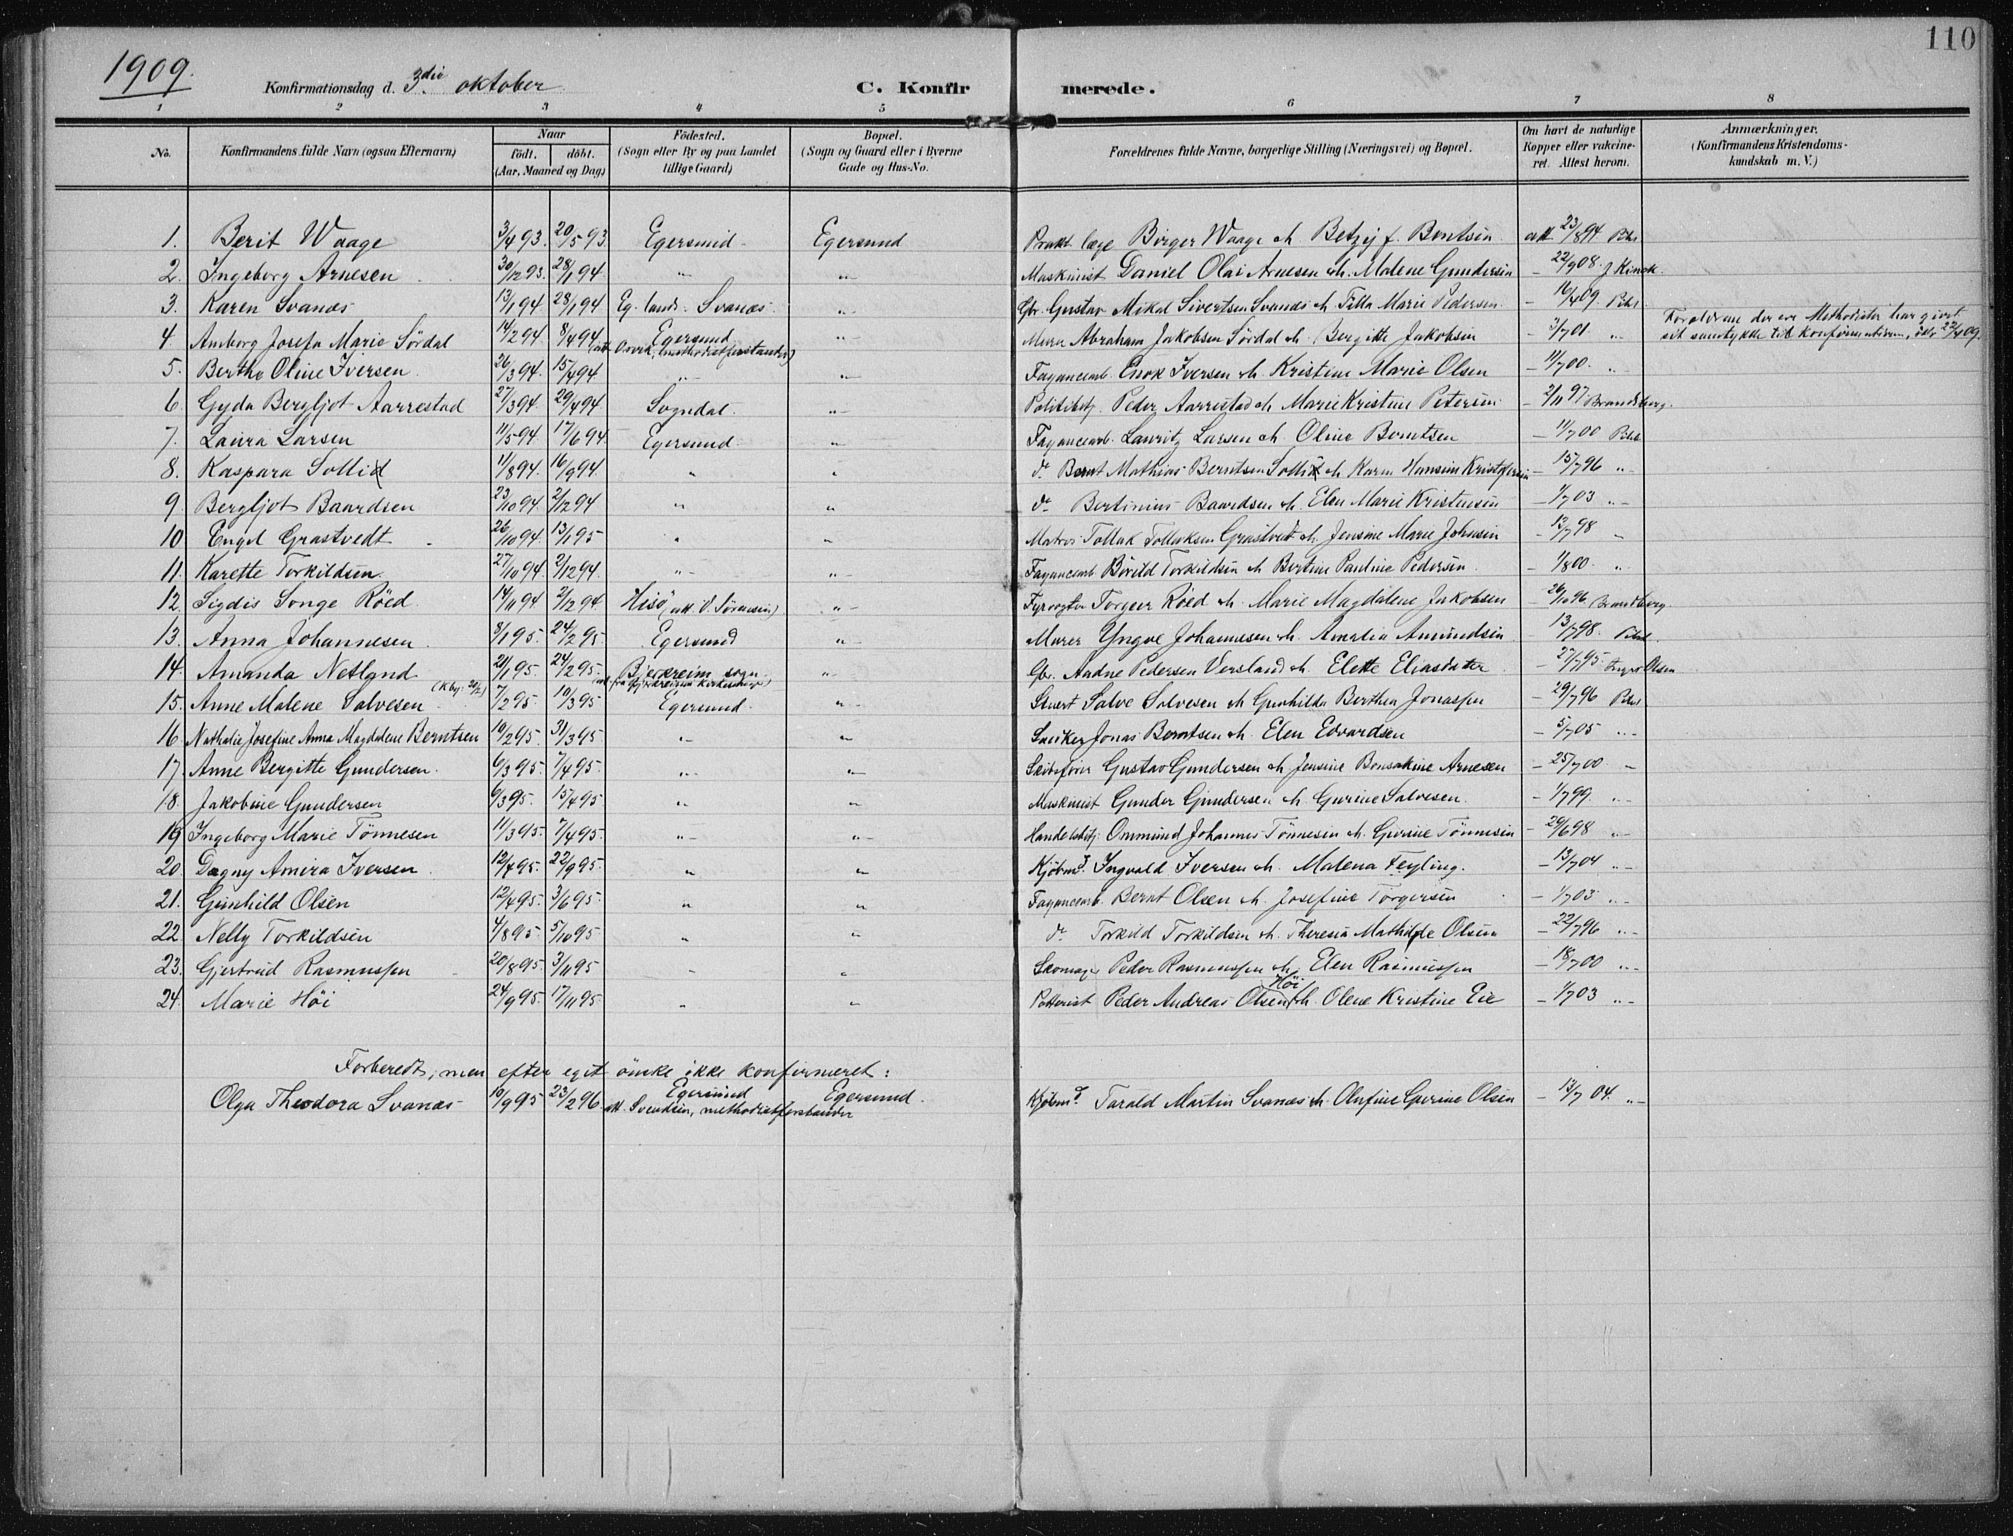 110
1909.
Konfirmationsdag d. 3die oktober
C. Konfirmerede.
1 2 3 4 5 6 7 8
No. Konfirmandens fulde Navn (ogsaa Efternavn) Naar födt. döbt. (Aar, Maaned og Dag) Födested. (Sogn eller By og paa Landet tillige Gaard) Bopæl. (Sogn og Gaard eller i Byerne Gade og Hus-No. Forældrenes fulde Navne, borgerlige Stilling (Næringsvei) og Bopæl. Om havt de naturlige Kopper eller vakcineret. Attest herom. Anmærkninger. (Konfirmandens Kristendomskundskab m. V.)
1. Berit Waage 3/4 93. 20/5 93. Egersund Egersund Prakt. læge Birger Waage & Betzy f. Berntsen att 23/8 94
2. Ingeborg Arnesen 30/12 93. 28/1 94 " " Maskinist Daniel Olai Arnesen & Malene Gundersen - 22/9 08.
3. Karen Svanæs 13/1 94 28/1 94 Eg. land. Svanæs " Gbr. Gustav Mikal Sivertsen Svanæs & Tilla Marie Pedersen - 16/4 09.
4. Amborg Josefa Marie Sördal 14/2 94 8/4 94 Egersund " Murer Abraham Jakobsen Sördal & Bergitte Jakobsen - 3/7 01 " Forældrene der ere Methodister har givet
methodistforstander) sit samtykke til konfirmationen, 22/4 09.
5. Berthe Oline Iversen 26/3 94. 15/4 94 " " Fayancearb. Enok Iversen & Kristine Marie Olsen - 11/7 00. "
6. Gyda Bergljot Aarrestad 27/3 94 29/4 94 Sogndal. " Politibtj. Peder Aarrestad & Marie Kristine Petersen - 2/11 97 Brandsberg.
7. Laura Larsen 11/5 94 17/6 94 Egersund " Fayancearb. Lauritz Larsen & Oline Berntsen - 11/7 00
8. Kaspara Sollid 11/8 94 16/9 94 " " do Bernt Mathias Berntsen Solli & Karen Hansine Kristofersen - 15/7 96 "
9. Bergljot Baardsen 23/10 94 2/12 94 " " do Bertinius Baardsen & Elen Marie Kristensen - 1/7 03 "
10. Engel Grastvedt 26/10 94 13/1 95 " " Matros Tollak Tollaksen Grastvedt & Jensine Marie Johnsen - 13/7 98 "
11. Karette Torkildsen 27/10 94 2/12 94. " " Fayancearb Börild Torkildsen & Bertine Pauline Pedersen - 1/8 00. "
12. Sigdis Songe Röed 14/11 94 2/12 94. Hisö, att. O. Sörensen) " Fyrvogter Torger Röed & Marie Magdalene Jakobsen - 26/10 96
13. Anna Johannesen 8/1 95. 24/2 95 Egersund " Murer Yngve Johannesen & Amalia Amundsen - 13/7 98.
14. Amanda Netland 21/1 95. 24/2 95. Bjerkreim sogn " Gbr. Aadne Pedersen Versland & Elette Eliasdater - 27/7 95 Olsen
15. Anne Malene Salvesen 7/2 95. 10/3 95 Egersund " Stuert Salve Salvesen & Gunhilda Berthea Jonassen - 29/7 96
16. Nathalie Josefine Anna Magdalene Berntsen 10/2 95. 31/3 95 " " Snekker Jonas Berntsen & Elen Edvardsen - 5/7 05 "
17. Anne Bergitte Gundersen. 6/3 95. 7/4 95. " " Skibsförer Gustav Gundersen & Jensine Bonsakine Arnesen - 25/7 00 "
18. Jakobine Gundersen 6/3 95. 15/4 95. " " Maskinist Gunder Gundersen & Gurine Salvesen. - 1/7 99. "
19. Ingeborg Marie Tönnesen 11/3 95. 7/4 95. " " Handelsbtj. Ommund Johannes Tönnesen & Gurine Tönnesen - 20/6 98 "
20. Dagny Amira Iversen 12/4 95. 22/9 95. " " Kjöbmd. Ingvald Iversen & Malena Feyling. - 13/7 04 "
21. Gunhild Olsen 12/4 95. 3/6 95. " " Fayancearb. Bernt Olsen & Josefine Torgersen - 1/7 03 "
22. Nelly Torkildsen 4/8 95. 5/10 95. " " do Torkild Torkildsen & Theresia Mathilde Olsen - 22/7 96 "
23. Gjertrud Rasmussen 20/8 95. 3/11 95 " " Skomager Peder Rasmussen & Elen Rasmussen - 18/7 00 "
24. Marie Höi 24/9 95. 17/11 95 " " Potterist Peder Andreas Olsen Höi & Olene Kristine Eie - 1/7 03 "
Forberedt, men efter eget önske ikke konfirmeret:
Olga Theodora Svanæs 10/9 95 23/2 96 Egersund Egersund. Kjöbmd. Tarald Martin Svanæs & Olufine Gurine Olsen - 13/7 04. "
att. Svendsen, methodistforstander